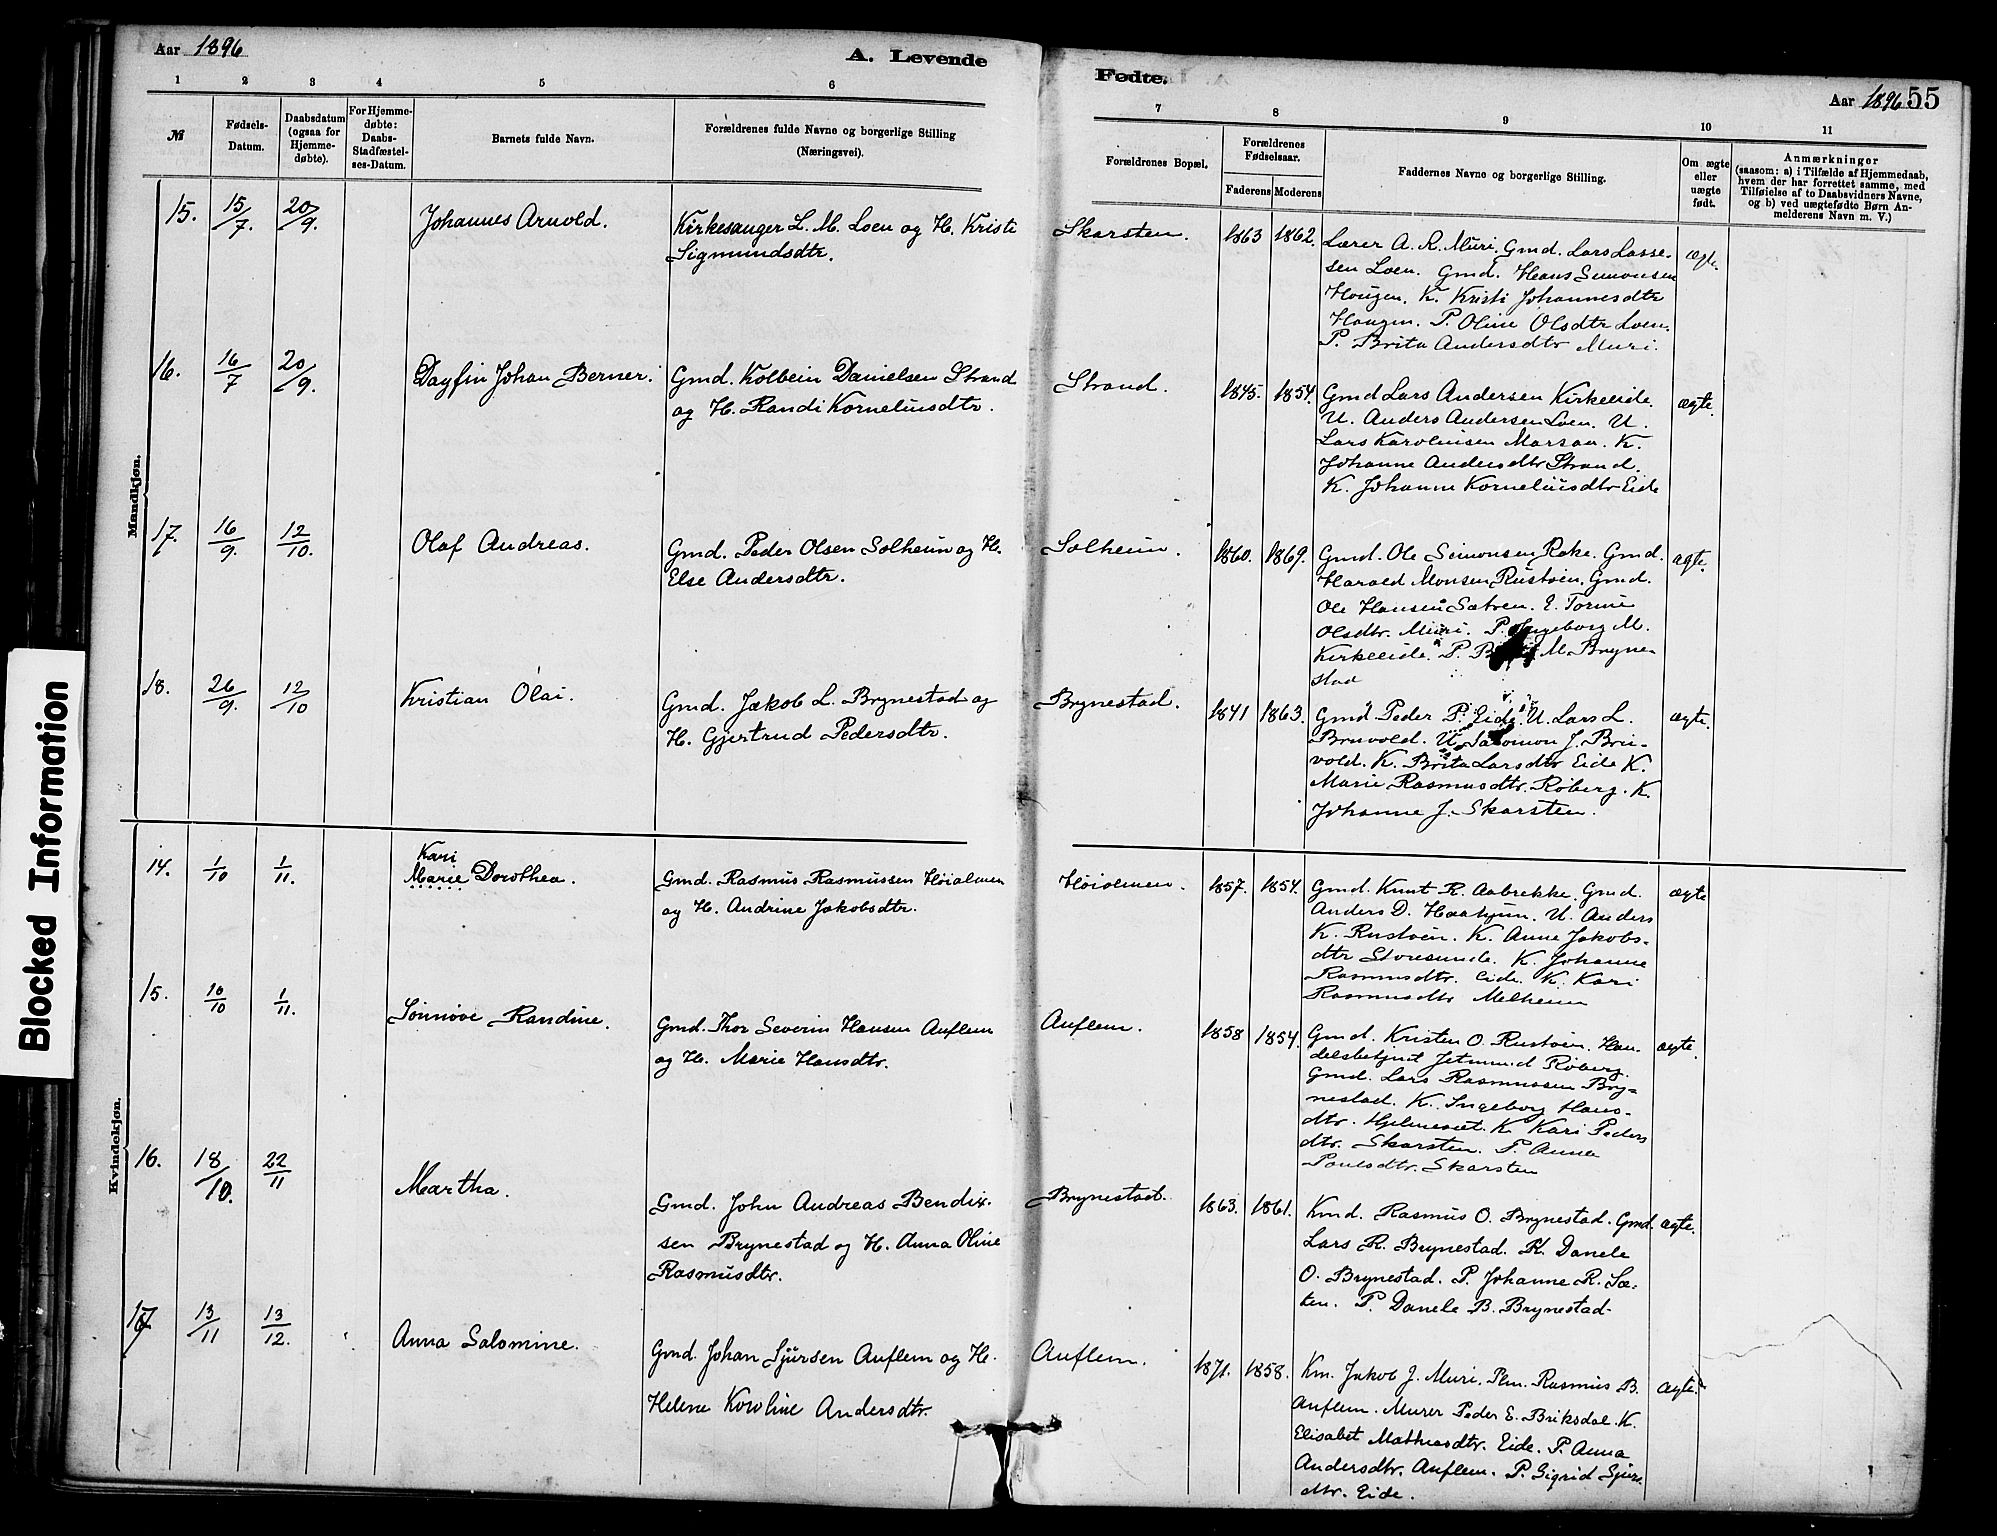 Aar 1896
A. Levende
Fødte.
Aar 1896 55
1 2 3 4 5 6 7 8 9 10 11
№
Fødsels-
Datum.
Daabsdatum
(ogsaa for
Hjemme-
døbte).
For Hjemme-
døbte:
Daabs-
Stadfæstel-
ses-Datum.
Barnets fulde Navn.
Forældrenes fulde Navne og borgerlige Stilling
(Næringsvei).
Forældrenes Bopæl.
Forældrenes
Fødselsaar.
Faderens Moderens
Faddernes Navne og borgerlige Stilling.
Om ægte
eller
uægte
født.
Anmærkninger
(saasom: a) i Tilfælde af Hjemmedaab,
hvem der har forrettet samme, med
Tilføielse af to Daabsvidners Navne,
og b) ved uægtefødte Børn An-
melderens Navn m. V.)
Mandkjøn.
15. 15/7. 20/9. Johannes Arnold.
Kirkesanger L. M. Loen og H. Kristi
Sigmundsdtr.
Skarsten. 1863 1862.
Lærer A. R. Muri. Gmd. Lars Lasse-
sen Loen. Gmd. Hans Simonsen
Hougen. K. Kristi Johannesdtr
Haugen. P. Oline Olsdtr Loen.
P. Brita Andersdtr Muri.
ægte.
16. 16/7 20/9. Dagfin Johan Berner.
Gmd. Kolbein Danielsen Strand
og H. Randi Korneliusdtr.
Strand. 1845. 1854.
Gmd Lars Andersen Kirkeeide.
U. Anders Andersen Loen. U.
Lars Karolinsen Marsaa. K.
Johanne Andersdtr Strand.
K. Johanne Korneliusdtr Eide
ægte.
17. 16/9. 12/10. Olaf Andreas.
Gmd. Peder Olsen Solheim og H.
Else Andersdtr.
Solheim. 1860. 1869.
Gmd. Ole Simonsen Rake. Gmd.
Harald Monsen Rustøen. Gmd.
Ole Hansen Sætren. E. Torine
Olsdtr. Muri. P. Ingeborg M.
Kirkeeide. P. M. Bryne-
stad
ægte.
18. 26/9. 12/10 Kristian Olai.
Gmd. Jakob L. Brynestad og
H. Gjertrud Pedersdtr.
Brynestad. 1841 1863.
Gmd Peder P. Eide. U. Lars L.
Bruvold. U. Salomon J. Bru-
vold. K. Brita Larsdtr Eide K.
Marie Rasmusdtr. Røberg. K.
Johanne J. Skarsten.
ægte.
Kvindekjøn.
14. 1/10 1/11.
Kari
Marie Dorothea.
Gmd. Rasmus Rasmussen Høialmen
og H. Andrine Jakobsdtr.
Høialmen. 1857. 1854.
Gmd. Knut R. Aabrekke. Gmd.
Anders D. Haahjem. U. Anders
K. Rustøen. K. Anne Jakobs-
dtr Storesunde. K. Johanne
Rasmusdtr. Eide. K. Kari
Rasmusdtr Melheim
ægte
15. 10/10 1/11. Sønnøve Randine.
Gmd. Thor Severin Hansen Auflem
og H. Marie Hansdtr.
Auflem. 1858 1854.
Gmd. Kristen O. Rustøen. Han-
delsbetjent Jetmund Røberg.
Gmd. Lars Rasmussen Bry-
nestad. K. Ingeborg Hans-
dtr. Hjelmeset. K. Kari Peders
dtr. Skarsten. P. Anna
Poulsdtr. Skarsten
ægte.
16. 18/10. 22/11 Martha.
Gmd. John Andreas Bendix-
sen Brynestad og H. Anna Oline
Rasmusdtr.
Brynestad. 1863. 1861.
Kmd. Rasmus O. Brynestad. Gmd.
Lars R. Brynestad. K. Danele
O. Brynestad. P. Johanne R. Sæ-
ten. P. Danele B. Brynestad.
ægte.
17 13/11 13/12. Anna Salomine.
Gmd. Johan Sjursen Auflem og H.
Helene Karoline Andersdtr.
Auflem. 1871. 1858.
Km. Jakob J. Muri. Plm. Rasmus B.
Auflem. Murer Peder E. Briksdal. K.
Elisabet Mathiasdtr. Eide. P. Anna
Andersdtr. Auflem. P. Sigrid Sjurs-
dtr. Eide.
ægte.
Blocked Information